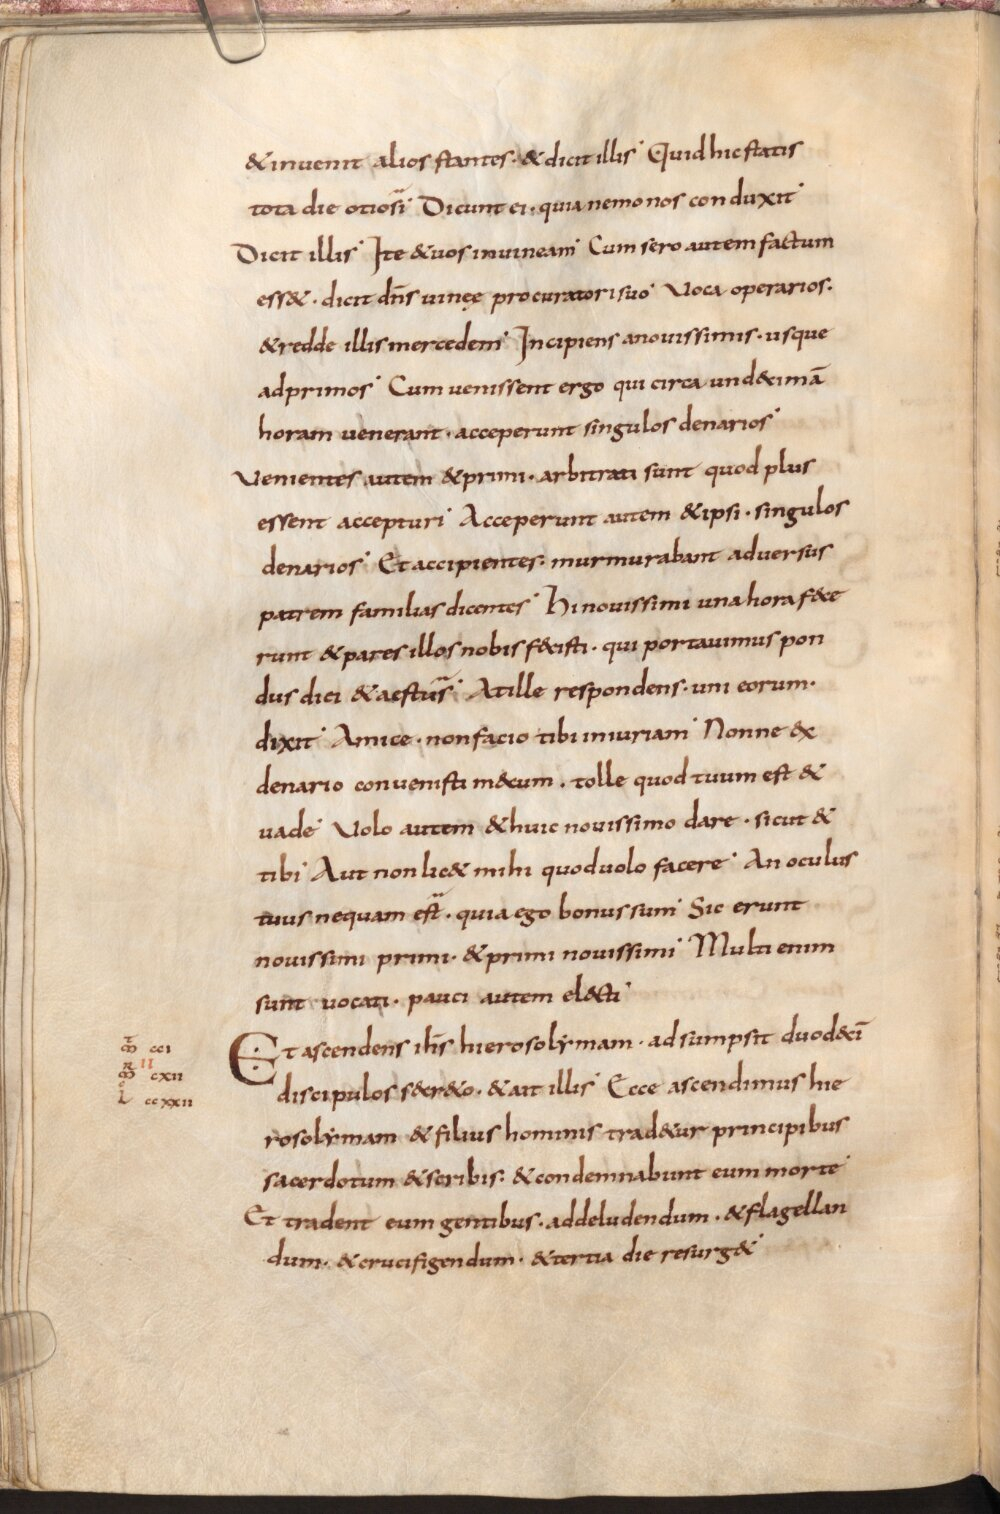 & inuenit alios stantes· & dicit illis· Quid hic statis
tota die otiosi· Dicunt ei· quia nemo nos conduxit·
Dicit illis· Ite & uos in uineam· Cum sero autem factum
ess&· dicit dn̄s uineę procuratori suo· Voca operarios·
& redde illis mercedem· Incipiens a nouissimis· usque
ad primos· Cum uenissent ergo qui circa und&imā
horam uenerant· acceperunt singulos denarios·
Venientes autem & primi· arbitrati sunt quod plus
essent accepturi· Acceperunt autem & ipsi· singulos
denarios· Et accipientes· murmurabant aduersus
patrem familias dicentes· Hi nouissimi una hora f&ce
runt & pares illos nobis f&isti· qui portauimus pon
dus diei & aestus· At ille respondens· uni eorum·
dixit· Amice· non facio tibi iniuriam· Nonne ex
denario conuenisti m&cum· tolle quod tuum est &
uade· Volo autem & huic nouissimo dare· sicut &
tibi· Aut non lic& mihi quod uolo facere· An oculus
tuus nequam est· quia ego bonus sum· Sic erunt
nouissimi primi· & primi nouissimi· Multi enim
sunt uocati· pauci autem el&cti·
Et ascendens ih̄s hierosolẏmam· adsumpsit duod&cī
discipulos s&cr&o· & ait illis· Ecce ascendimus hie
rosolẏmam & filius hominis trad&ur principibus
sacerdotum & scribis· & condemnabunt eum morte·
Et tradent eum gentibus· ad deludendum· & flagellan
dum· & crucifigendum· & tertia die resurg&·
cci
II
cxii
L ccxxii